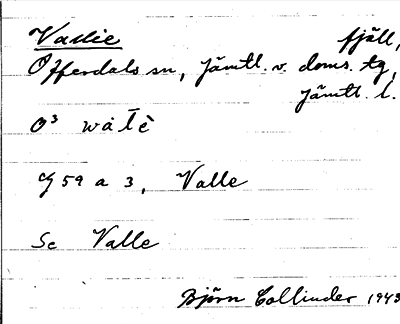 Vallie fjäll,
Offerdals sn, Jämtl. v. doms. tg,
Jämtl. l.
O³
G 59 a 3, Valle
Sc Valle
Björn Collinder 1943